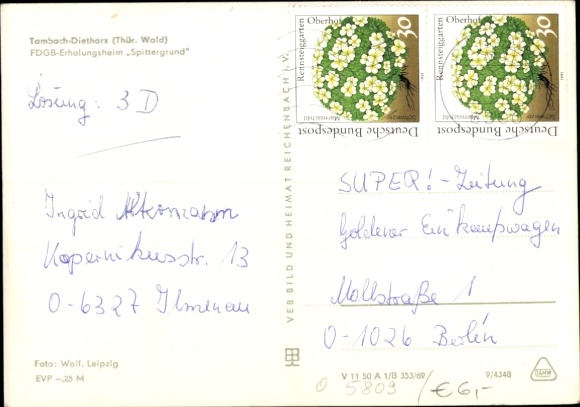 Tambach-Dietharz (Thür. Wald)
FDGB-Erholungsheim „Spittergrund"
Lösung: 3 D
Ingrid
Kopernikusstr. 13
O-6327 Ilmenau
Foto: Wolf, Leipzig
EVP –,25 M
VEB BILD UND HEIMAT REICHENBACH i. V.
30
Rennsteiggarten
Oberhof
Deutsche Bundespost
30
Rennsteiggarten
Oberhof
Deutsche Bundespost
SUPER!-Zeitung
Goldener Einkaufswagen
Mollstraße 1
O-1026 Berlin
V 11 50 A 1/B 353/69
9/4348
O 5809 / € 6,-